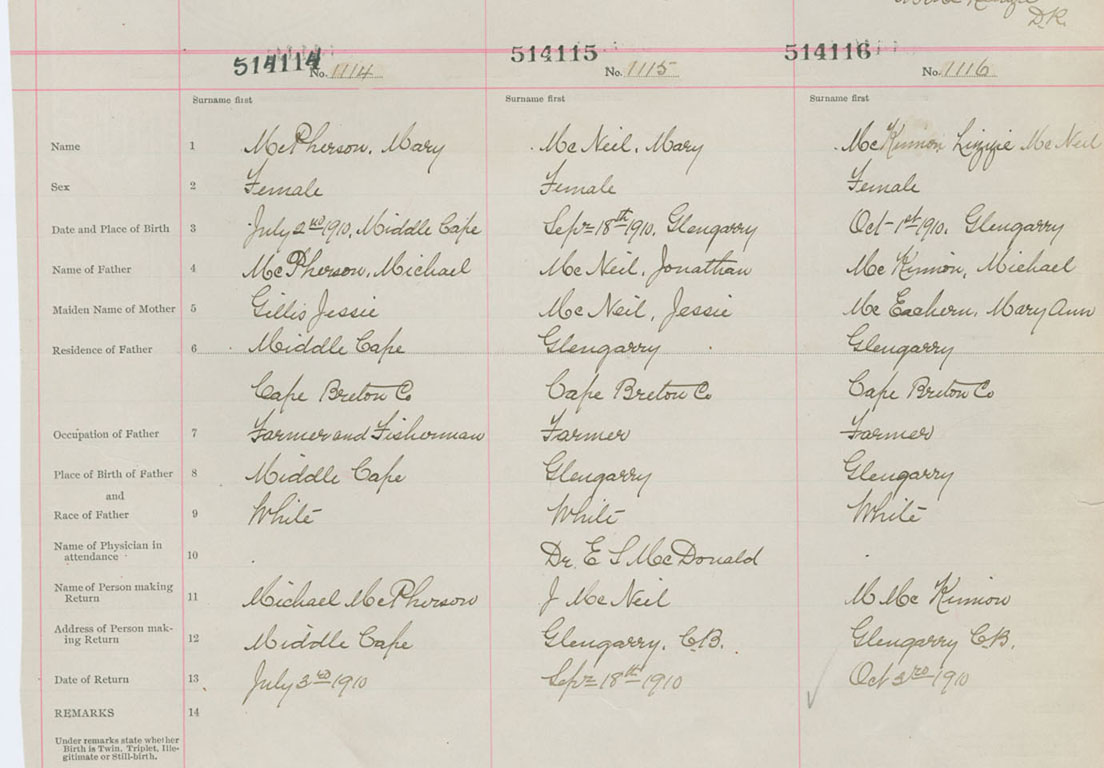 D.R.
514114 No. 1114 514115 No. 1115 514116 No. 1116
Surname first Surname first Surname first
Name 1 McPherson, Mary McNeil, Mary McKinnon Lizzie McNeil
Sex 2 Female Female Female
Date and Place of Birth 3 July 2nd 1910, Middle Cape Sept 18th 1910, Glengarry Oct 1st 1910, Glengarry
Name of Father 4 McPherson, Michael McNeil, Jonathan McKinnon, Michael
Maiden Name of Mother 5 Gillis Jessie McNeil, Jessie McEachern, Mary Ann
Residence of Father 6 Middle Cape Glengarry Glengarry
Cape Breton Co Cape Breton Co Cape Breton Co
Occupation of Father 7 Farmer and Fisherman Farmer Farmer
Place of Birth of Father 8 Middle Cape Glengarry Glengarry
and
Race of Father 9 White White White
Name of Physician in
attendance 10 Dr. E S McDonald
Name of Person making
Return 11 Michael McPherson J McNeil M McKinnon
Address of Person mak-
ing Return 12 Middle Cape Glengarry, C.B. Glengarry C.B.
Date of Return 13 July 3rd 1910 Sept 18th 1910 Oct 3rd 1910
REMARKS 14
Under remarks state whether
Birth is Twin, Triplet, Ille-
gitimate or Still-birth.